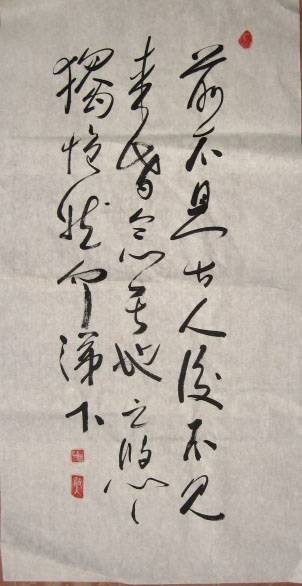 前不見古人後不見
來者念天地之悠々
獨愴然而涕下